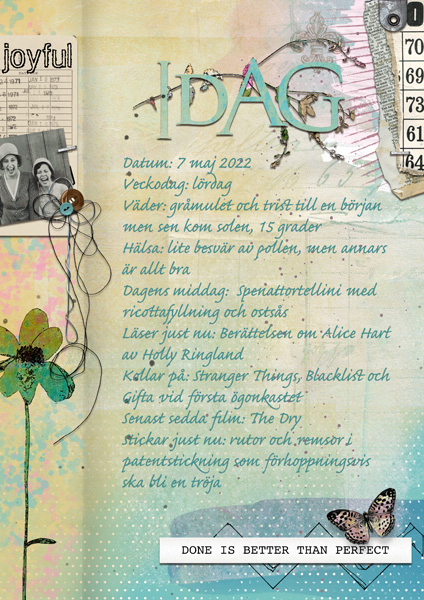 joyful
O
70
69
73
61
64
IDAG
Datum: 7 maj 2022
Veckodag: lördag
Väder: gråmulet och trist till en början
men sen kom solen, 15 grader
Hälsa: lite besvär av pollen, men annars
är allt bra
Dagens middag: Spenattortellini med
ricottafyllning och ostsås
Läser just nu: Berättelsen om Alice Hart
av Holly Ringland
Kollar på: Stranger Things, Blacklist och
Gifta vid första ögonkastet
Senast sedda film: The Dry
Stickar just nu: rutor och remsor i
patentstickning som förhoppningsvis
ska bli en tröja
DONE IS BETTER THAN PERFECT